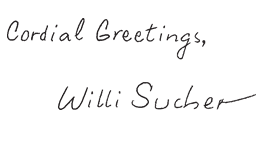 Cordial Greetings,
Willi Sucher